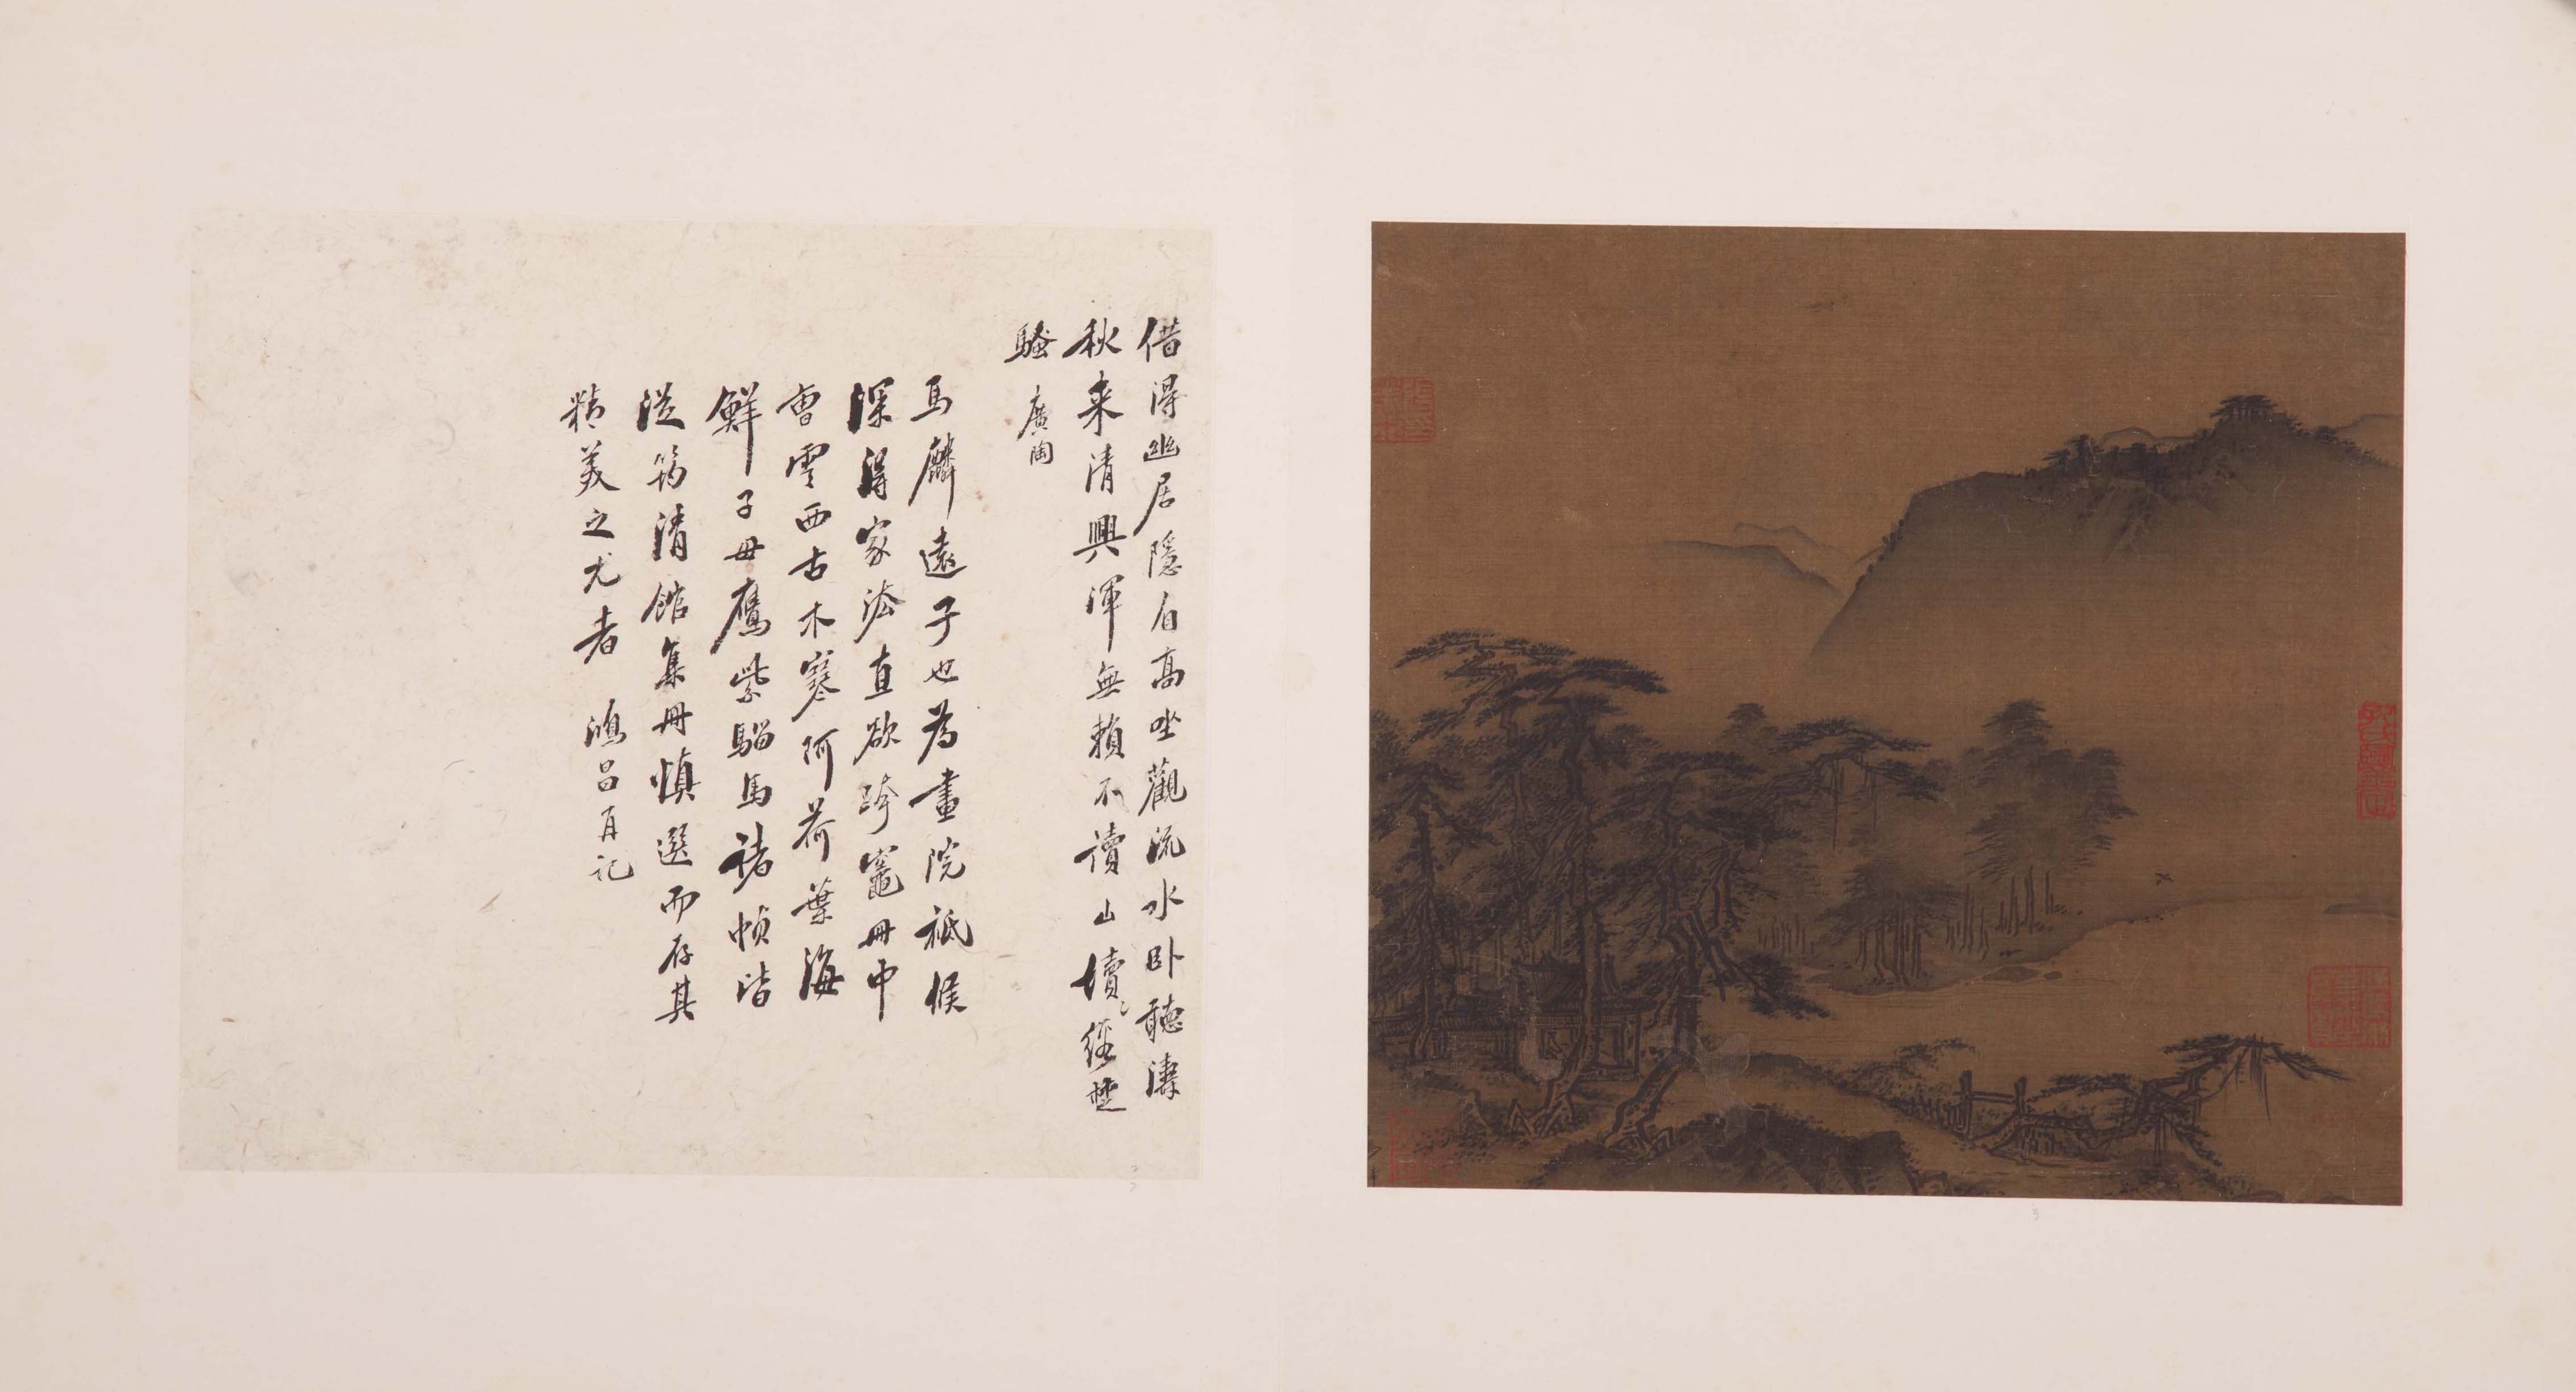 借得幽居隱自高坐觀流水卧聽濤
秋来清興渾無賴不讀山讀讀經楚
騷 廣陶
馬麟遠子也為畫院祗候
深得家法直欲跨竈冊中
曹雲西古木寒柯荷葉海
鮮子母鷹紫騮馬諸幀皆
從筠清館集冊慎選而存其
精美之尤者 鴻呂月記